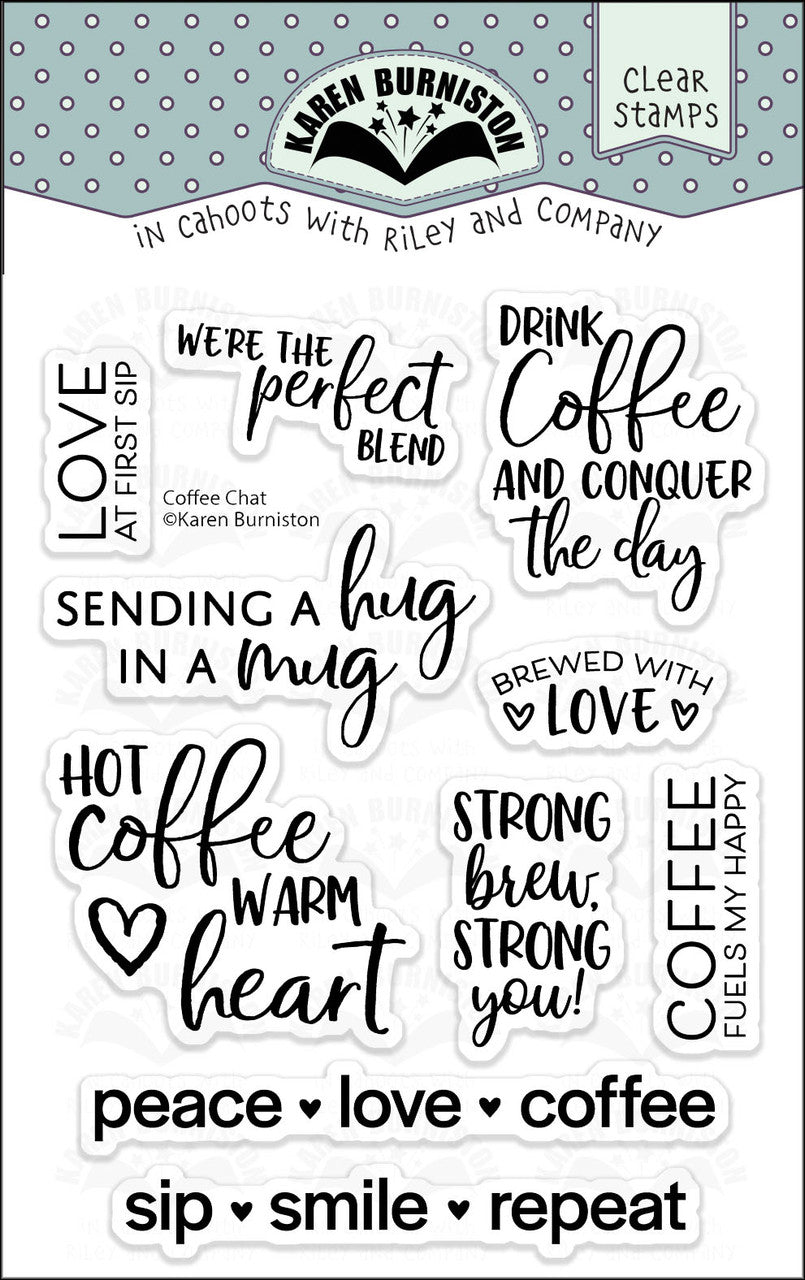 KAREN BURNISTON
CLEAR
STAMPS
in cahoots with Riley and Company
LOVE
AT FIRST SIP
WE'RE THE
perfect
BLEND
DRINK
Coffee
AND CONQUER
the day
Coffee Chat
©Karen Burniston
SENDING A hug
IN A mug
BREWED WITH
LOVE
HOT
coffee
WARM
heart
STRONG
brew,
STRONG
you!
COFFEE
FUELS MY HAPPY
peace ♥ love ♥ coffee
sip ♥ smile ♥ repeat